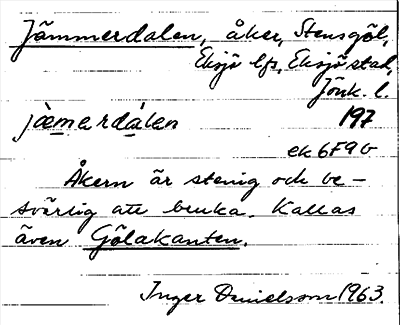 Jämmerdalen, åker, Stensgöl,
Eksjö lfs, Eksjö stad,
Jönk. l.
jàemerdálen 197
ek 6F9b
Åkern är stenig och be-
svärlig att bruka. Kallas
även Gölakanten.
Inger Danielsson 1963.